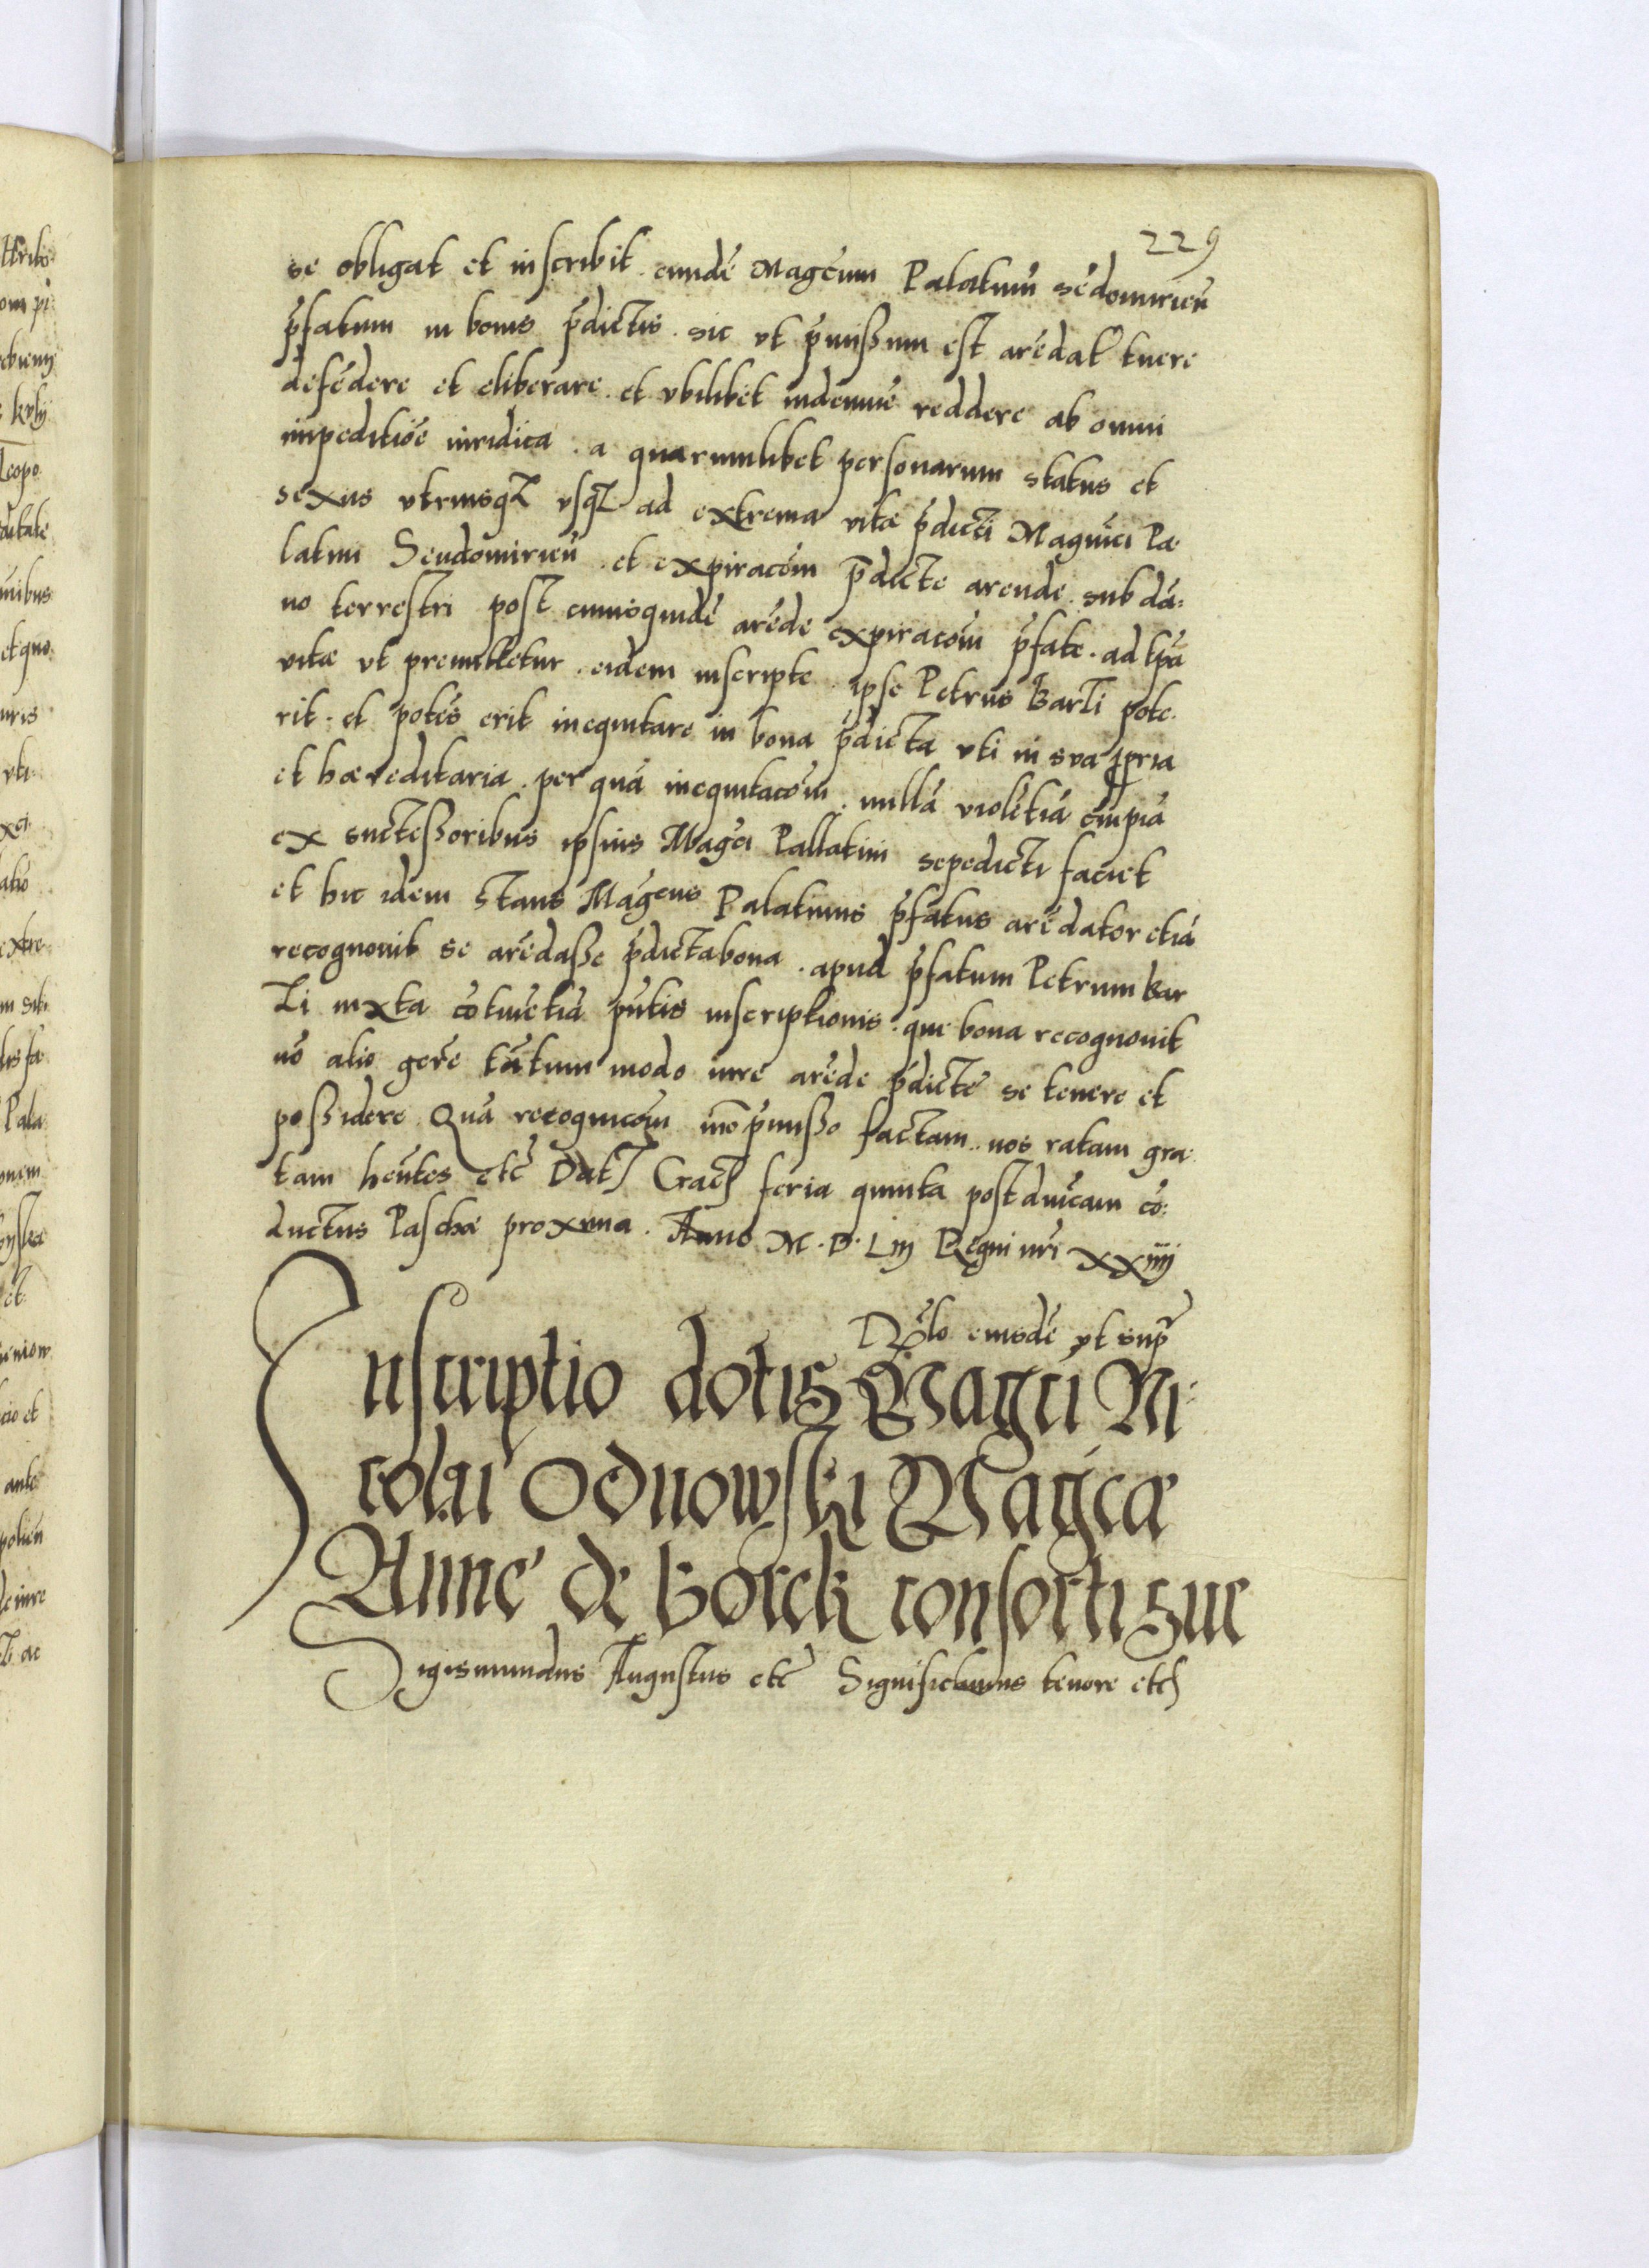 229
se obligat et inscribit eundē Magcūm Palatinū Sēdomirieñ
p̄fatum in bonis p̄dictis. sic vt p̄missum est arēdat tuere
defēdere et eliberare et vbilibet indemnē reddere ab omni
impeditiōe iuridica. a quarumlibet personarum status et
sexus vtriusq; vsq; ad extrema vitæ p̄dicti Magnici Pa-
latini Sendomirieñ et expiracōm p̄dicte arende sub dā-
no terrestri post cuiusquidē arēde expiracōm p̄fate. ad tp̄a
vitæ vt premittetur. eidem inscripte ipse Petrus Barzi pote-
rit et potēs erit inequitare in bona p̄dicta vti in sua ꝓpria
et hæreditaria. per quā inequitacōm. nullā violētiā cuipiā
ex suctessoribus ipsius Magci Pallatini sepedicti faciet
et hic idem stans Magcus Palatinus p̄fatus arēdator etiā
recognouit se arēdasse p̄dicta bona. apud p̄fatum Petrum Bar
zi iuxta cōtinētiā pn̄tis inscriptionis. que bona recognouit
nō alio gn̄re tātum modo iure arēde p̄dicte se tenere et
possidere Quā recognicōm mō p̄misso factam. nos ratam gra-
tam hēntes etc̄ Dat Crac̄ feria quinta post dn̄icam cō-
ductus Paschæ proxima. Anno M. D. Liij Regni nr̄i xxiiij
Rēlo eiusdē vt supr̄
Inscriptio dotis Magci Ni-
colai Odnowski Magcæ
Anne de Gorck consorti sue
Sigismundus Augustus etc̄ Significamus tenore etc̄